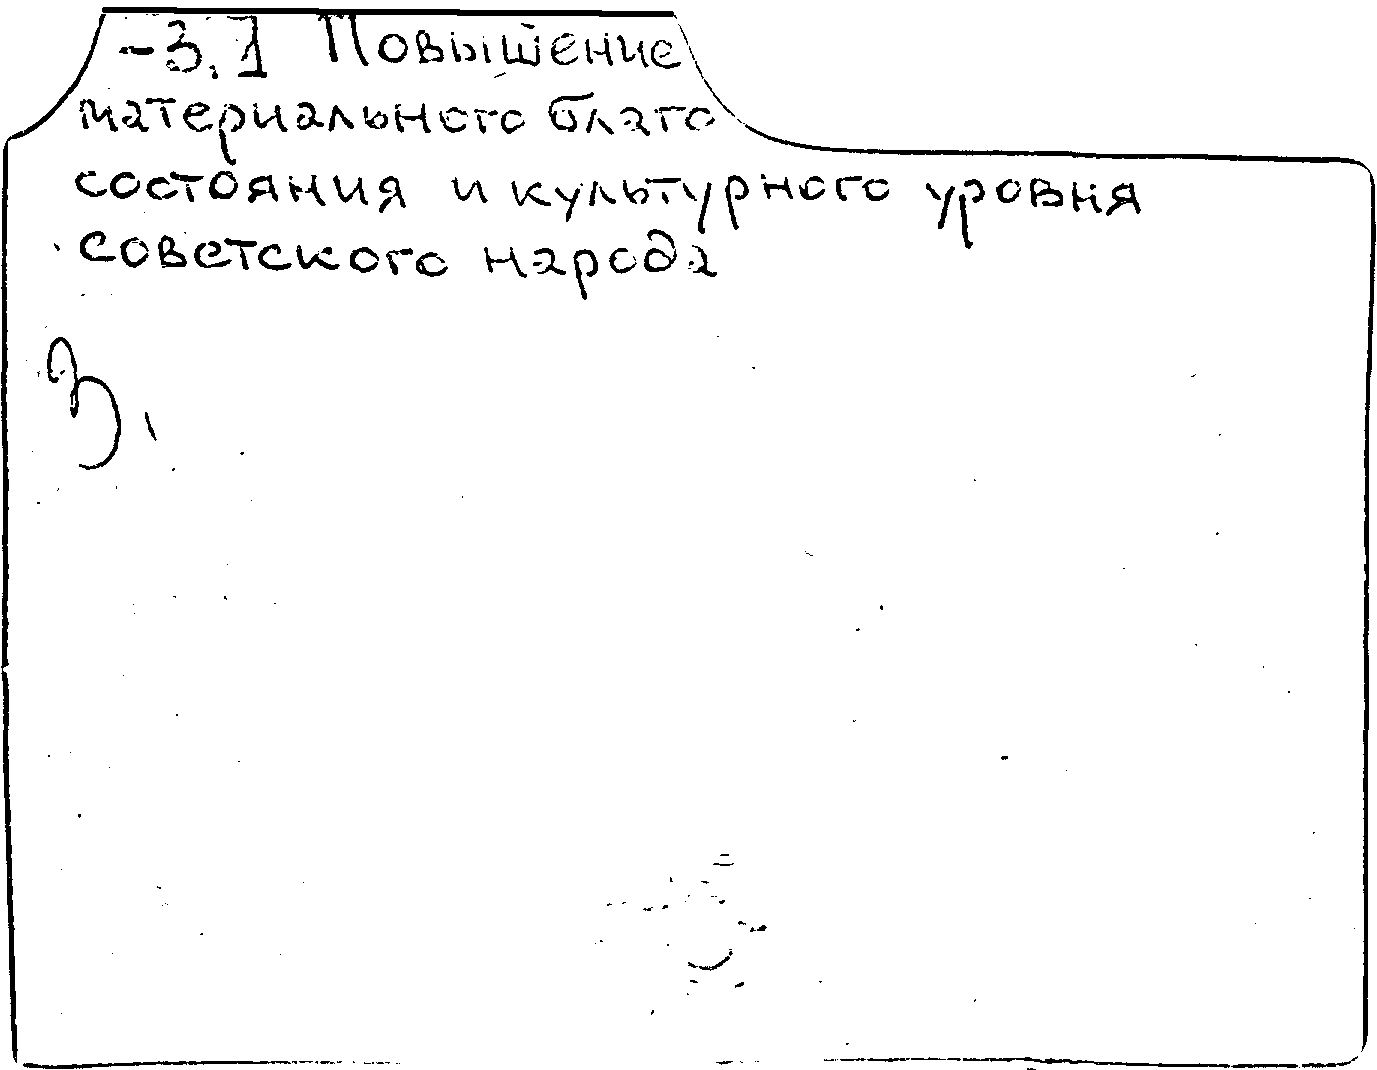 -3.1 Повышение
материального благо
состояния и культурного уровня
советского народа
3.